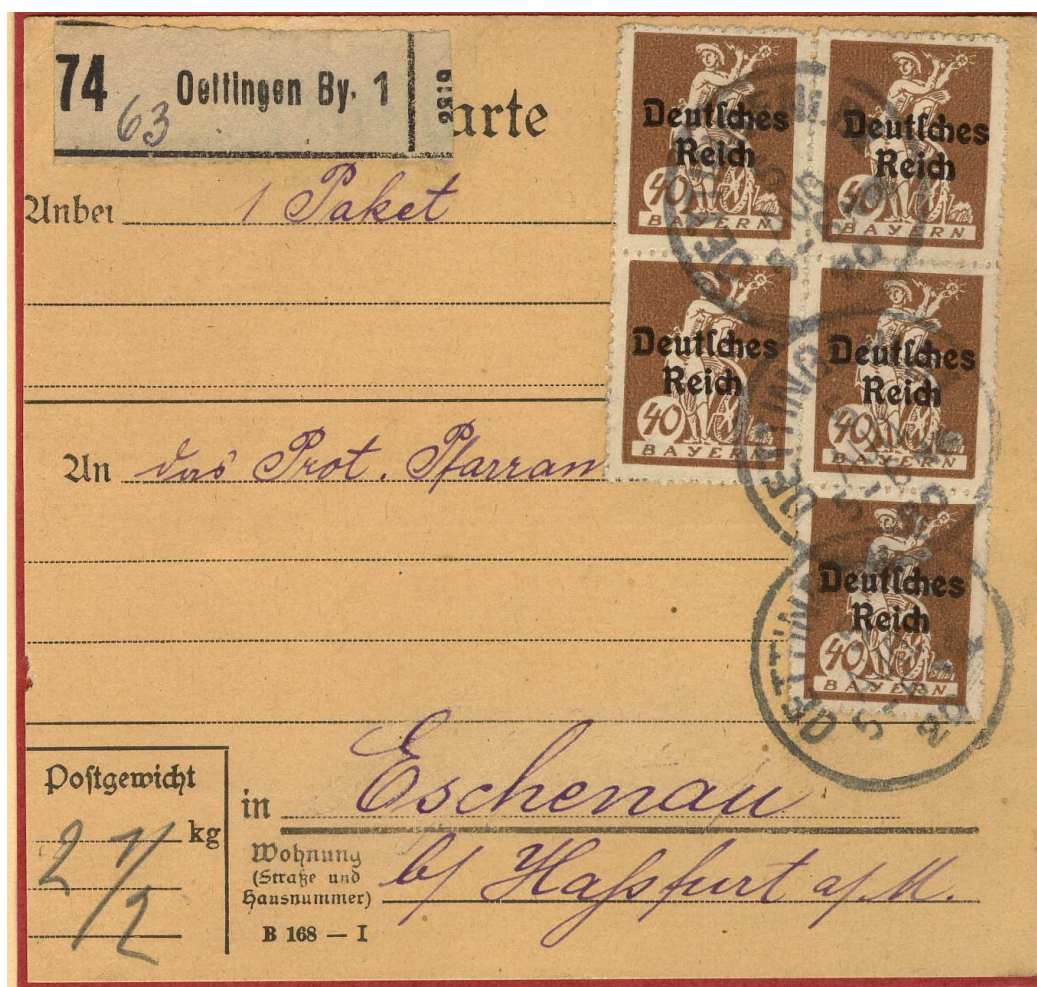 74 Oettingen By. 1
63
arte
Anbei 1 Paket
An das Prot. Pfarram
Deutsches
Reich
40
BAYERN
Deutsches
Reich
40
BAYERN
Deutsches
Reich
40
BAYERN
Deutsches
Reich
40
BAYERN
Deutsches
Reich
40
BAYERN
OETTING
Postgewicht
2 1/2 kg
in Eschenau
Wohnung
(Straße und
Hausnummer)
b/ Haßfurt a/M.
B 168 — I